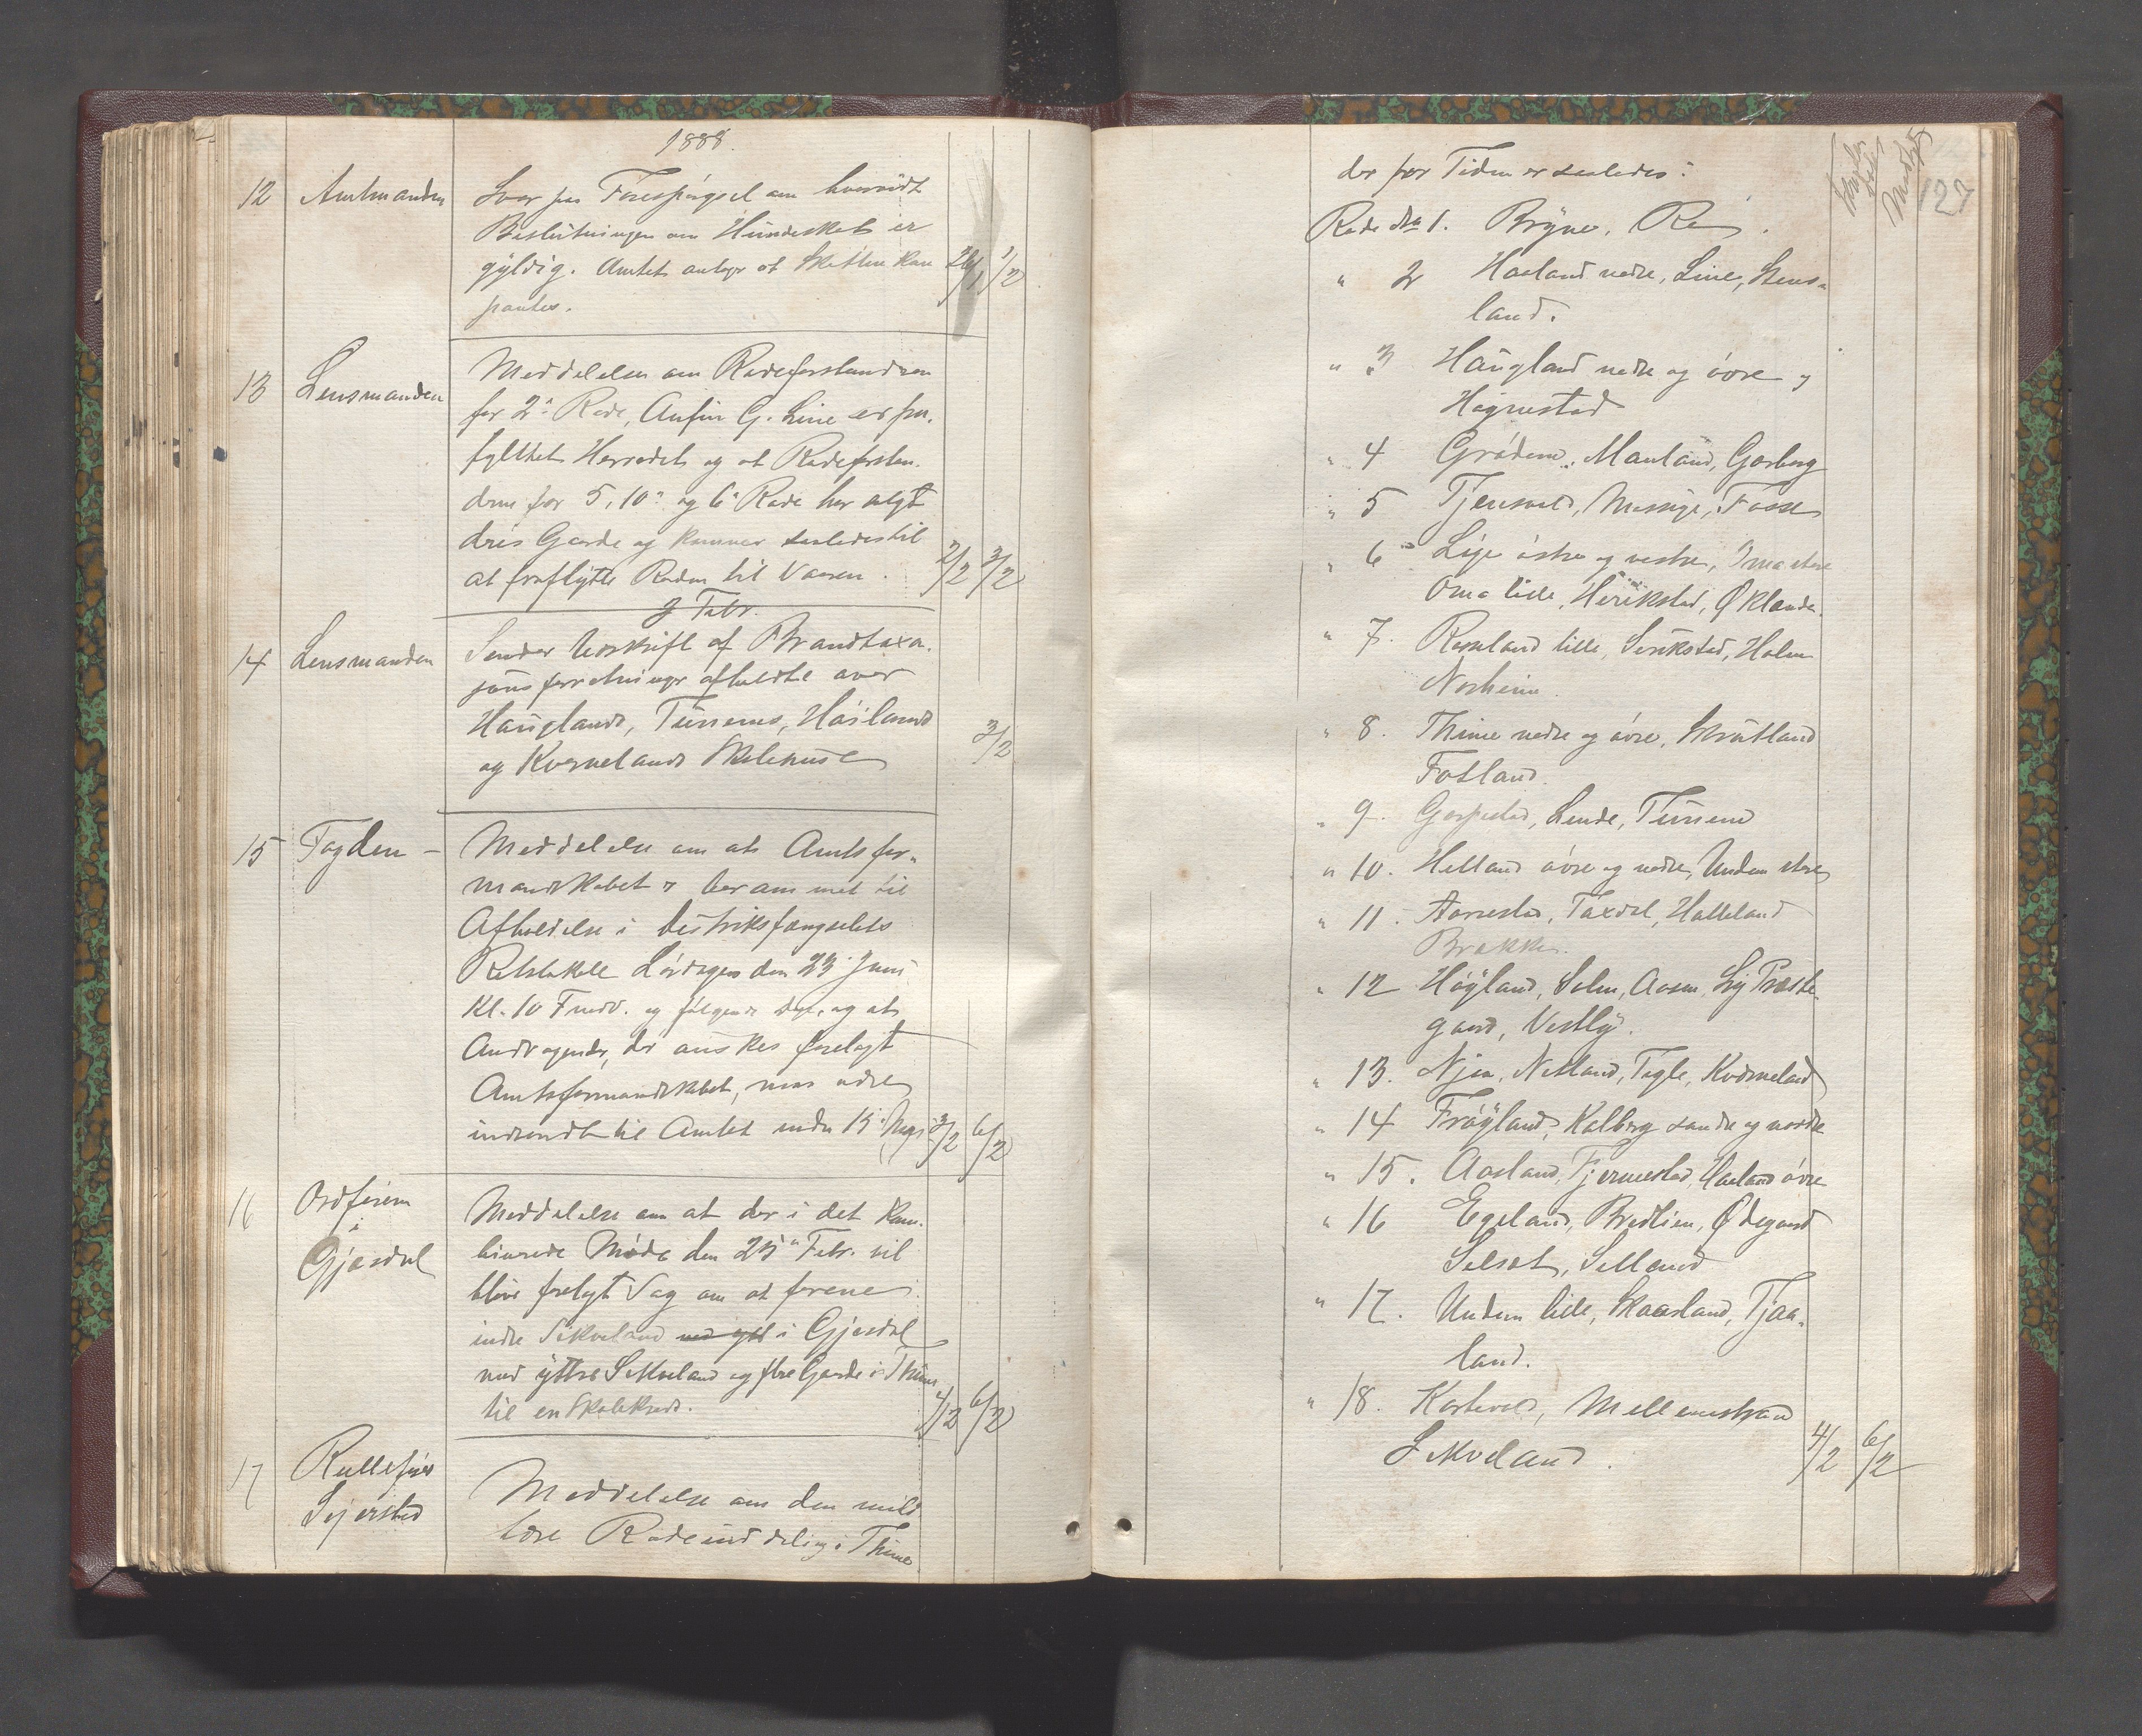 1888.
12 Amtmanden Svar paa Forespørgsel om hvorvidt
Beslutningen om Hundeskat er
gyldig. Amtet antager at Skatten kan
pantes. 28/1 1/2
13 Lensmanden Meddelelse om Rodeforstanderen
for 2den Rode, Anfin G. Line er fra-
flyttet Herredet og at Rodeforstan-
deren for 5, 10de og 6te Rode har solgt
dris Gaarde og kommer saaledes til
at fraflytte Roden til Vaaren. 2/2 3/2
3 Febr.
14 Lensmanden Sender Udskrift af Brandtaxa-
jonsforretninger afholdte over
Hauglands, Tunems, Høilands
og Kvernelands Skolehuse 3/2
15 Fogden - Meddelelse om at Amtsfor-
mandskabet er berammet til
Afholdelse i Distriksfængselets
Retslokale Lørdagen den 23de Juni
Kl. 10 Fmd. og følgende Dage, og at
Andragender, der ønskes forelagt
Amtsformandskabet, maa være
indsendt til Amtet inden 15 Maj 3/2 6/2
16 Ordføreren
i
Gjesdal
Meddelelse om at der i det kom-
binerede Møde den 25de Febr. vil
blive forelagt Sag om at forene
indre Sikveland i Gjesdal
med yttre Sikveland og flere Gaarde i Thime
til en Skolekreds. 4/2 6/2
17 Rullefører
Sejersted
Meddelelse om den mili-
tære Rodeinddeling i Thime
127
der for Tiden er saaledes:
Rode No 1. Bryne, Re.
" 2 Haaland nedre, Line, Stens-
land.
" 3 Haugland nedre og øvre og
Høgnestad
" 4 Grødem, Mauland, Garborg
" 5 Tjensvold, Mossige, Fosse
" 6 Lye østre og vestre, Oma store
Oma lille, Herikstad, Øklande.
" 7. Rosseland lille, Serikstad, Holen
Norheim.
" 8. Thime nedre og øvre, Skrutland
Fotland.
" 9. Garpestad, Lende, Tunem
" 10. Helland øvre og nedre, Undem store
" 11. Aarrestad, Taxdal, Halleland
Brække.
" 12 Høyland, Solem, Aasen, Ly Præste-
gaard, Vestly.
" 13. Njaa, Netland, Tegle, Kværneland
" 14 Frøyland, Kalberg søndre og nordre
" 15. Aasland, Tjermestad, Haaland øvre
" 16 Egeland, Bredlien, Ødegaard
Selsæt, Selland
" 17. Undem lille, Skaarland, Tjaa-
land.
" 18. Kartevold, Mellemstrand
Sikveland. 4/2 6/2